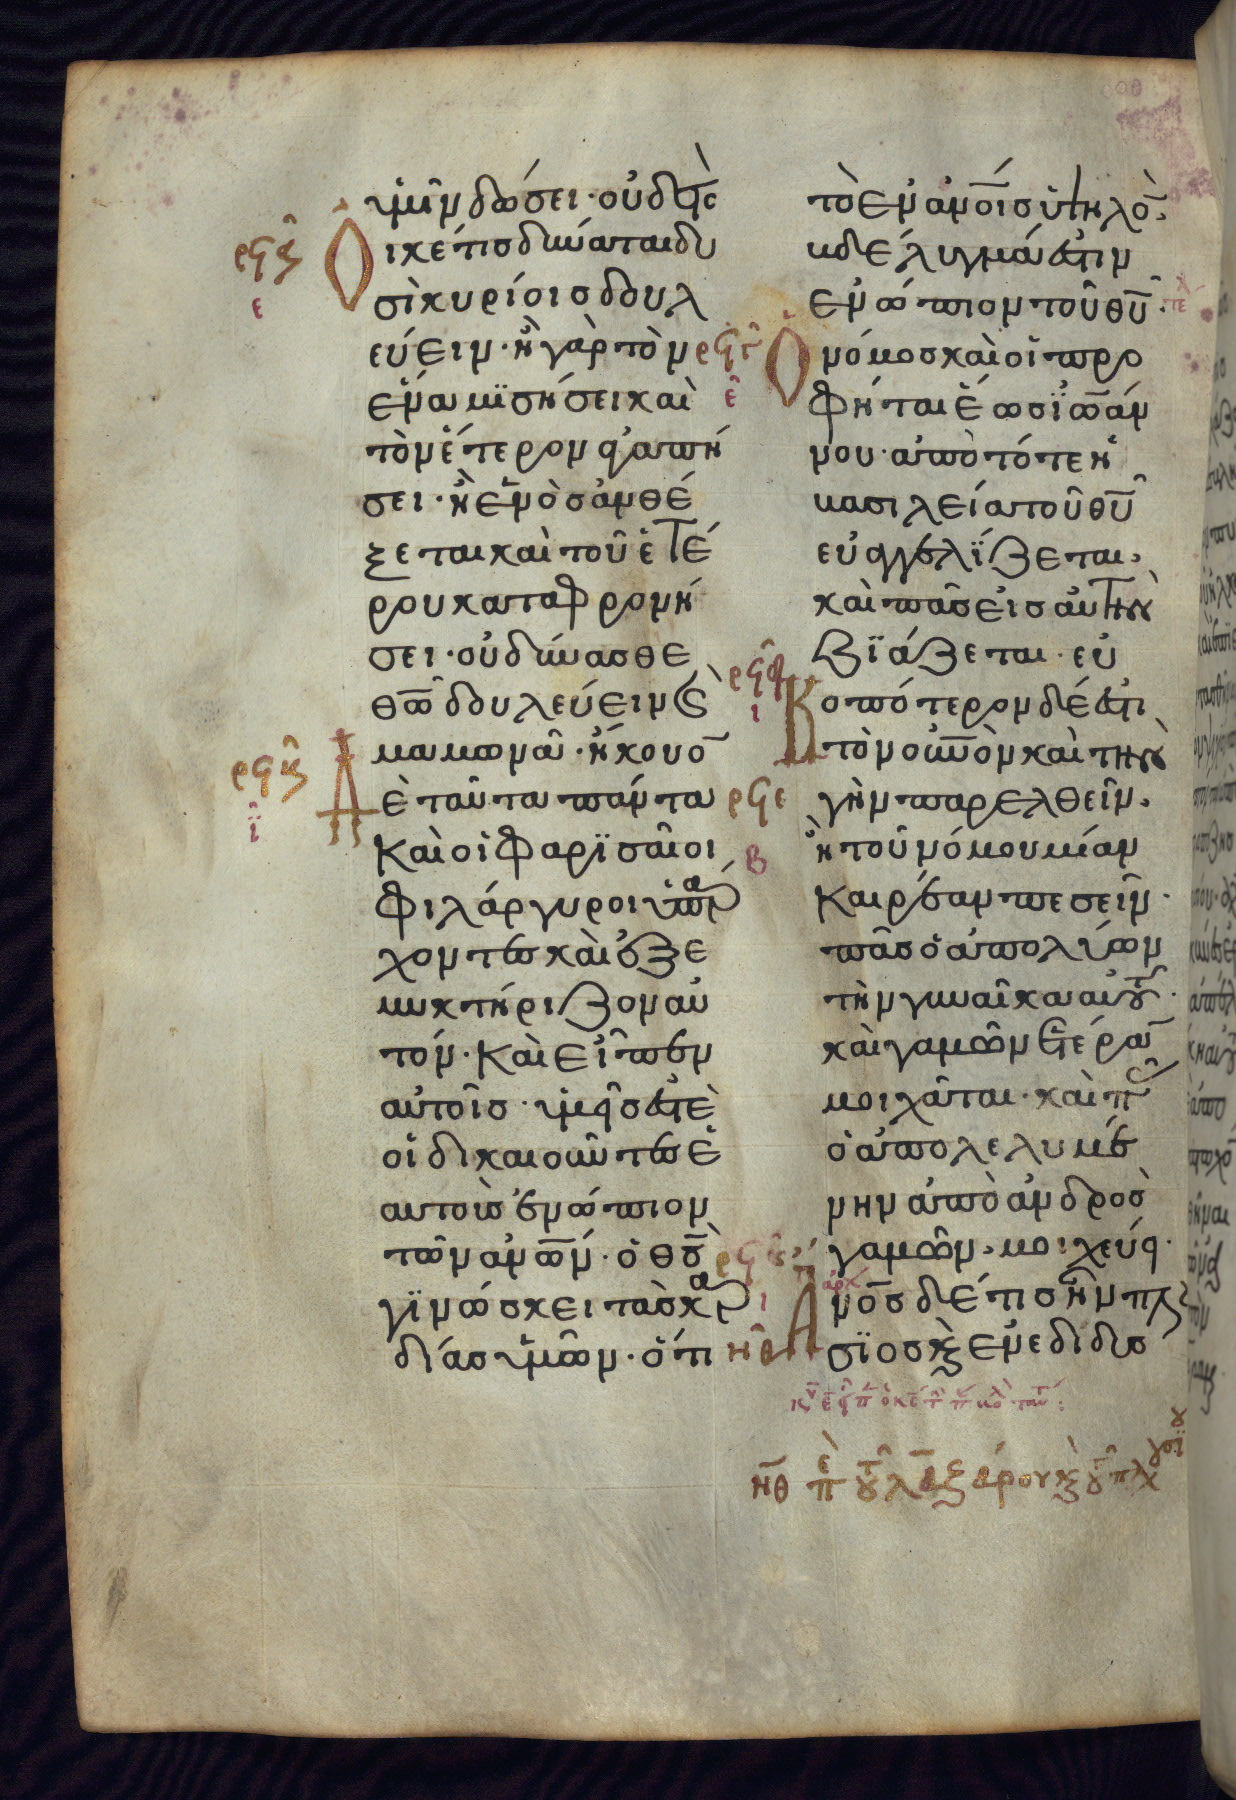 ὑμῖν δώσει· οὐδεὶς
ρϟϛ Οἰκέτης δύναται δυ
ε σὶ κυρίοις δουλ
εύειν· ἢ γὰρ τὸν
ἕνα μϊσήσει καὶ
τὸν ἕτερον ἀγαπή
σει· ἢ ἑνὸς ἀνθέ
ξεται καὶ τοῦ ἑτέ
ρου καταφρονή
σει· οὐ δύνασθε
θῶ δουλεύειν καὶ
μαμωνᾶ· ἤκουο
Αε ταῦτα πάντα
ϊ καὶ οἱ φαρϊσαῖοι
φιλάργυροι ὑπάρ
χοντες καὶ ἐξε
μυκτήριζον αὐ
τόν· καὶ εἶπεν
αὐτοῖς· ὑμεῖς ἐστὲ
οἱ δικαιοῦντες ἑ
αυτοὺς ἐνώπιον
τῶν ἀνων· ὁ θς
γϊνώσκει τὰς καρ
δίας ὑμῶν· ὅτι
τὸ ἐν ἀνοις ὑψηλὸ
βδέλυγμά ἐστιν
ἐνώπιον τοῦ θυ·
Ὁ νόμος καὶ οἱ προ
ε φήται ἕως ϊωάν
νου· ἀπὸ τότε ἡ
βασιλεία τοῦ θυ
εὐαγγελϊζεται·
καὶ πᾶς εἰς αὐτὴν
βϊάζεται· εὐ
ι κοπώτερον δέ ἐστι
τὸν οὐνὸν καὶ τὴν
ρϟε γὴν παρελθεῖν·
β ἢ τοῦ νόμου μίαν
καιρέαν πεσεῖν·
πᾶς ὁ ἀπολύων
τὴν γυναῖκα αὐτοῦ·
καὶ γαμῶν ἑτέραν
μοιχᾶται· καὶ πᾶς
ὁ ἀπολελυμέ
νην ἀπὸ ἀνδρὸς
γαμῶν· μοιχεύει·
ι ἀρχ Ἀνος δέ τις ἦν πλού
σϊος καὶ ἐνεδιδύσ